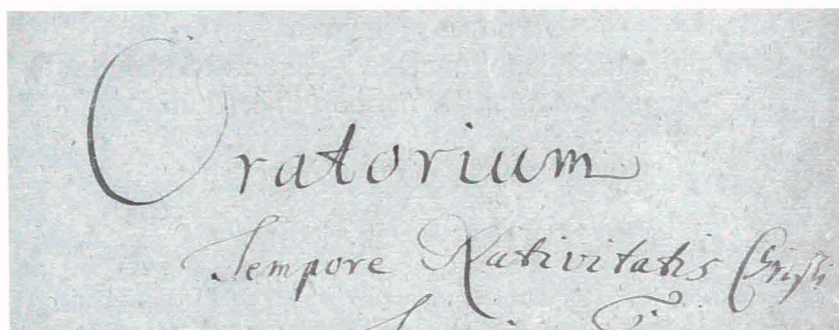 Oratorium
Tempore Nativitatis Christi